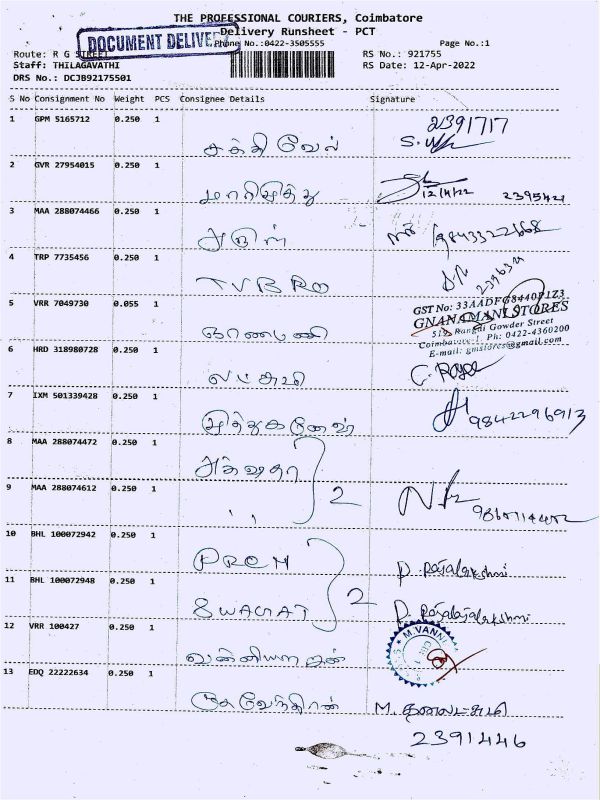 THE PROFESSIONAL COURIERS, Coimbatore
DOCUMENT DELIVERY
Delivery Runsheet - PCT
Phone No.:0422-3505555
Page No.:1
Route: R G STREET
RS No.: 921755
Staff: THILAGAVATHI
RS Date: 12-Apr-2022
DRS No.: DCJB92175501
S No Consignment No Weight PCS Consignee Details Signature
1 GPM 5165712 0.250 1
2391717
சக்தி வேல்
2 GVR 27954015 0.250 1
மாரிமுத்து 12/4/22 2395421
3 MAA 288074466 0.250 1
அருண் 9843322668
4 TRP 7735456 0.250 1
TVBRO
5 VRR 7049730 0.055 1
GST No: 33AADFG8440P1Z3
GNANAMANI STORES
519, Rangai Gowder Street
Coimbatore-1 Ph: 0422-4360200
E-mail: gmstores@gmail.com
ஞானமணி
6 HRD 318980728 0.250 1
லட்சுமி
7 IXM 501339428 0.250 1
9842296913
8 MAA 288074472 0.250 1
அக்ஷதா
9 MAA 288074612 0.250 1
,, 2
10 BHL 100072942 0.250 1
PREM P. Rajalakshmi
11 BHL 100072948 0.250 1
2
SWAGAT
12 VRR 100427 0.250 1
M.VANNI
வன்னியராஜன்
13 EDQ 22222634 0.250 1
M.
2391446